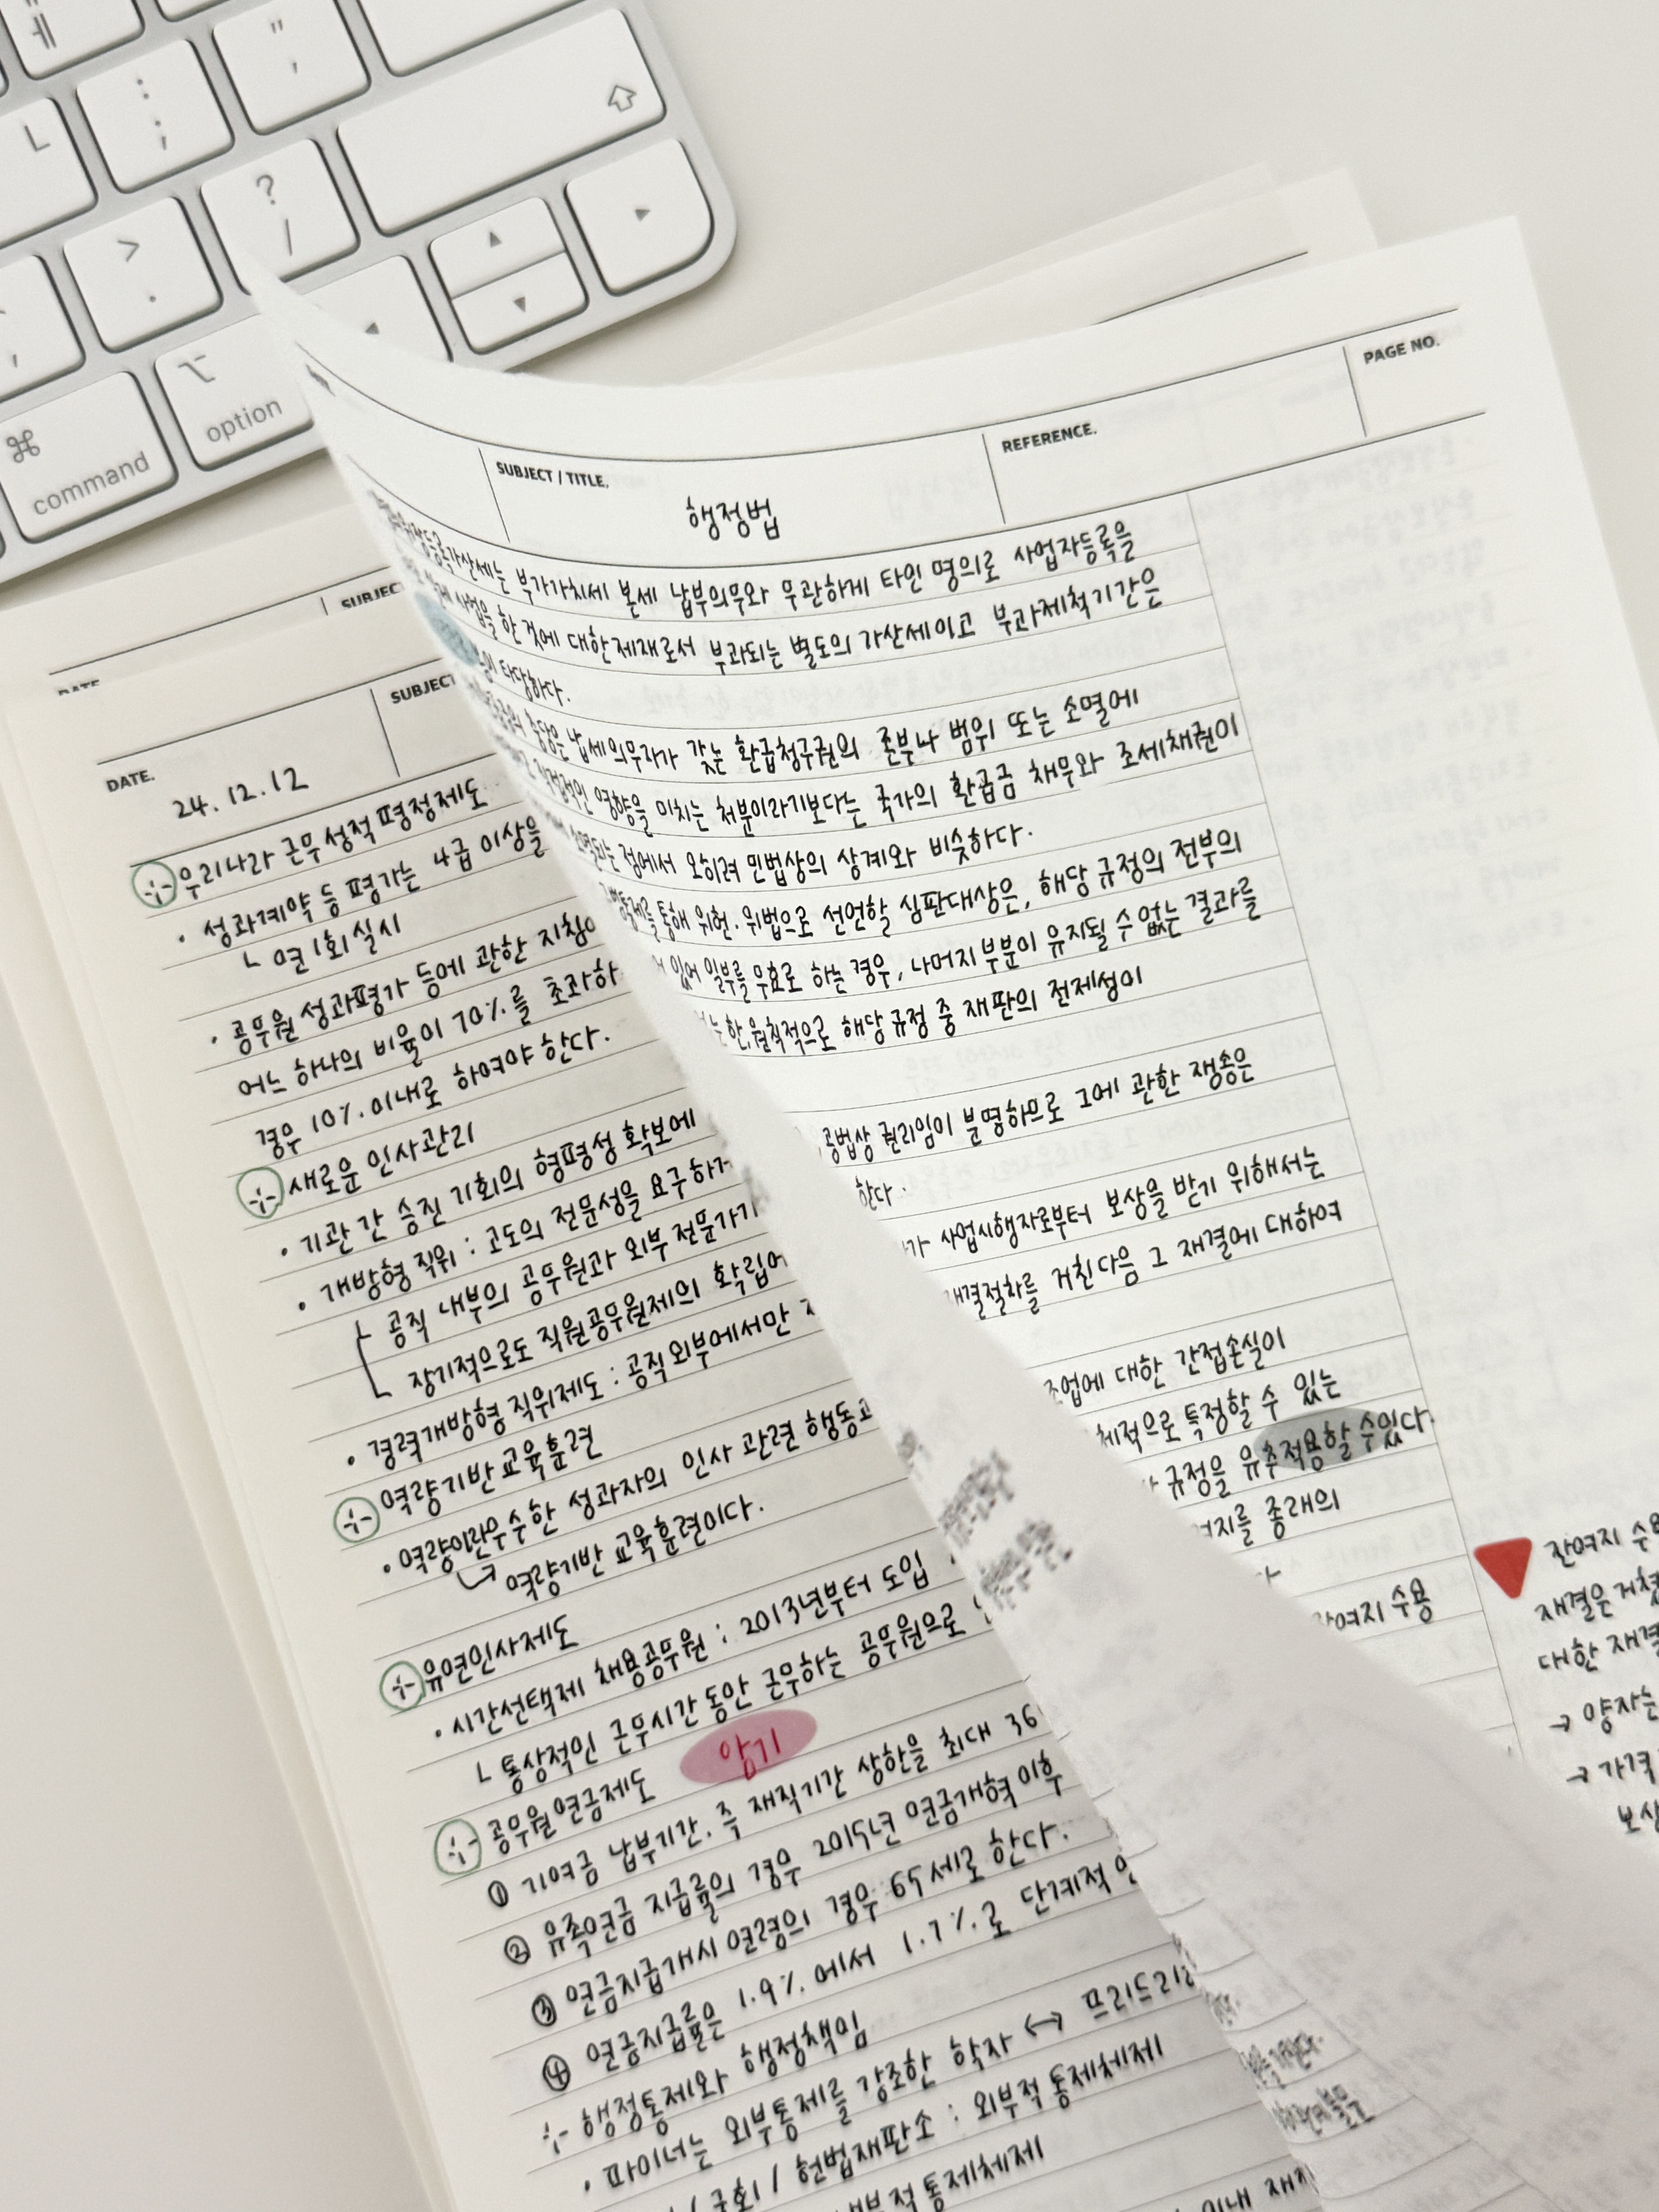 ㅖ
ㅔ
"
,
:
;
L
?
/
>
.
⌘
command
⌥
option
SUBJECT / TITLE.
REFERENCE.
PAGE NO.
행정법
가산세는 부가가치세 본세 납부의무와 무관하게 타인 명의로 사업자등록을
사업을 한 것에 대한 제재로서 부과되는 별도의 가산세이고 부과제척기간은
타당하다.
충당은 납세의무자가 갖는 환급청구권의 존부나 범위 또는 소멸에
직접적인 영향을 미치는 처분이라기보다는 국가의 환급금 채무와 조세채권이
소멸되는 점에서 오히려 민법상의 상계와 비슷하다.
통해 위헌·위법으로 선언할 심판대상은, 해당 규정의 전부의
있어 일부를 무효로 하는 경우, 나머지 부분이 유지될 수 없는 결과를
는 한, 원칙적으로 해당 규정 중 재판의 전제성이
공법상 권리임이 분명하므로 그에 관한 쟁송은
한다.
가 사업시행자로부터 보상을 받기 위해서는
재결절차를 거친다음 그 재결에 대하여
조업에 대한 간접손실이
체적으로 특정할 수 있는
규정을 유추적용할 수있다.
여지를 종래의
잔여지 수용
잔여지 수용
재결을 거쳤
대한 재결
→ 양자는
→ 가격
보상
SUBJECT
DATE.
SUBJECT
DATE.
24. 12. 12
우리나라 근무성적 평정제도
· 성과계약 등 평가는 4급 이상을
ㄴ 연 1회 실시
· 공무원 성과평가 등에 관한 지침
어느 하나의 비율이 70%를 초과하
경우 10%. 이내로 하여야 한다.
새로운 인사관리
· 기관 간 승진 기회의 형평성 확보에
· 개방형 직위 : 고도의 전문성을 요구하거
ㅏ 공직 내부의 공무원과 외부 전문가가
ㄴ 장기적으로도 직원공무원제의 확립에
· 경력개방형 직위제도 : 공직 외부에서만
역량기반 교육훈련
· 역량이란 우수한 성과자의 인사 관련 행동
↳ 역량기반 교육훈련이다.
유연인사제도
· 시간선택제 채용공무원 : 2013년부터 도입
ㄴ 통상적인 근무시간 동안 근무하는 공무원으로
공무원 연금제도 암기
① 기여금 납부기간. 즉 재직기간 상한을 최대 36
② 유족연금 지급률의 경우 2015년 연금개혁 이후
③ 연금지급개시 연령의 경우 65세로 한다.
④ 연금지급률은 1.9%에서 1.7%로 단계적
행정통제와 행정책임
· 파이너는 외부통제를 강조한 학자 ↔ 프리드리히
/ 국회 / 헌법재판소 : 외부적 통제체제
내부적 통제체제